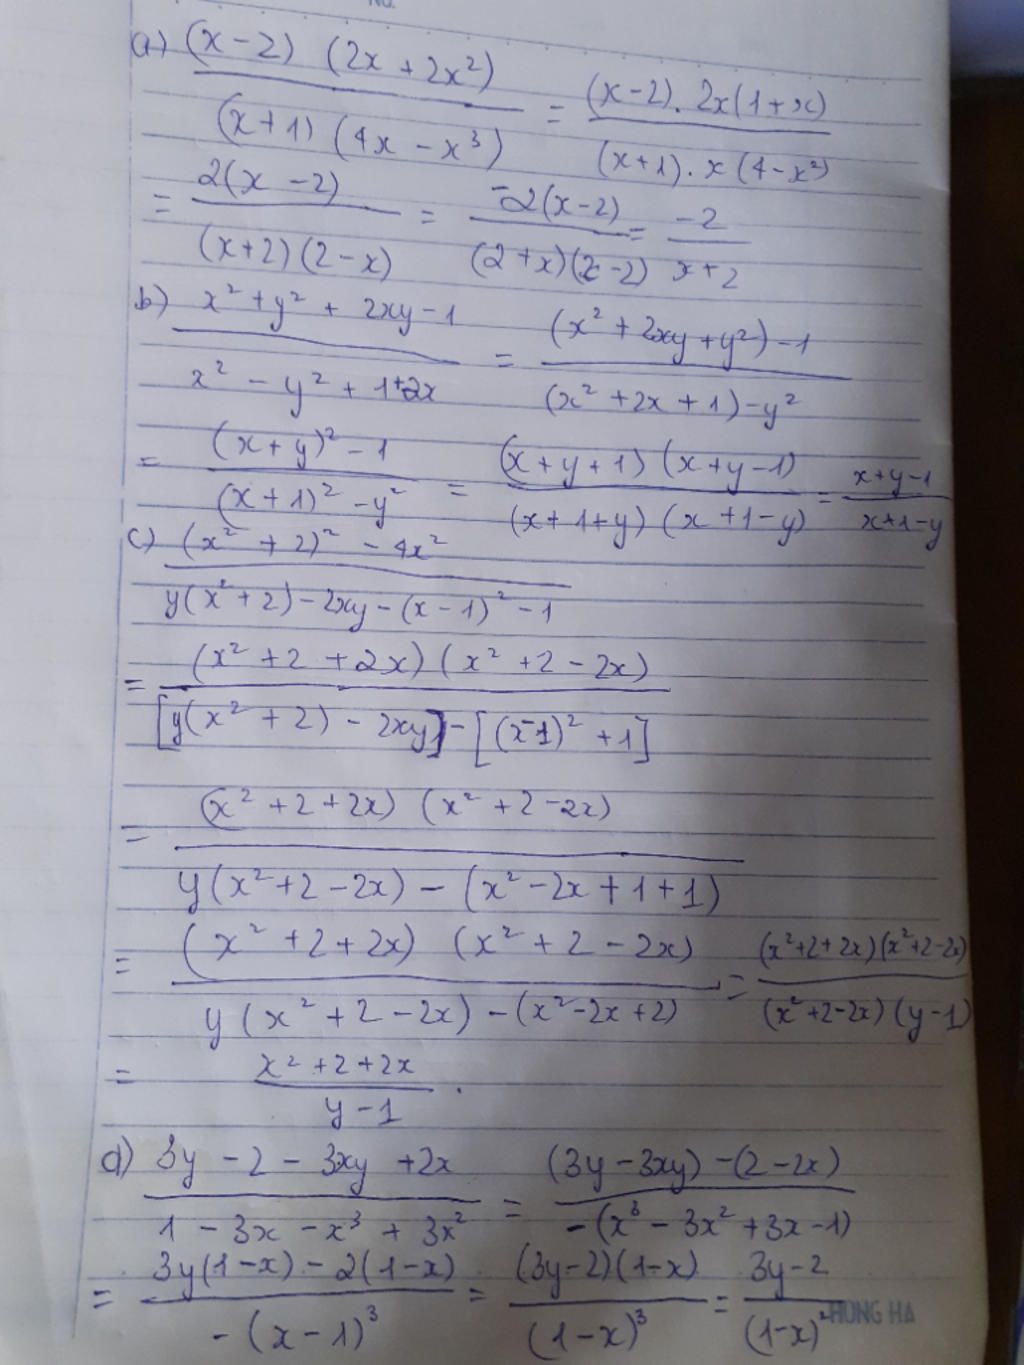 No.
a) (x-2) (2x + 2x²) / (x+1) (4x - x³) = (x-2). 2x(1+x) / (x+1). x(4-x²)
= 2(x-2) / (x+2)(2-x) = -2(x-2) / (2+x)(x-2) = -2 / x+2
b) x² + y² + 2xy - 1 / x² - y² + 1 + 2x = (x² + 2xy + y²) - 1 / (x² + 2x + 1) - y²
= (x+y)² - 1 / (x+1)² - y² = (x+y+1) (x+y-1) / (x+1+y) (x+1-y) = x+y-1 / x+1-y
c) (x² + 2)² - 4x² / y(x²+2) - 2xy - (x-1)² - 1
= (x² + 2 + 2x) (x² + 2 - 2x) / [y(x² + 2) - 2xy] - [(x-1)² + 1]
= (x² + 2 + 2x) (x² + 2 - 2x) / y(x² + 2 - 2x) - (x² - 2x + 1 + 1)
= (x² + 2 + 2x) (x² + 2 - 2x) / y(x² + 2 - 2x) - (x² - 2x + 2) = (x²+2+2x)(x²+2-2x) / (x²+2-2x)(y-1)
= x² + 2 + 2x / y - 1 .
d) 3y - 2 - 3xy + 2x / 1 - 3x - x³ + 3x² = (3y - 3xy) - (2 - 2x) / -(x³ - 3x² + 3x - 1)
= 3y(1-x) - 2(1-x) / -(x-1)³ = (3y-2)(1-x) / (1-x)³ = 3y-2 / (1-x)²
HONG HA